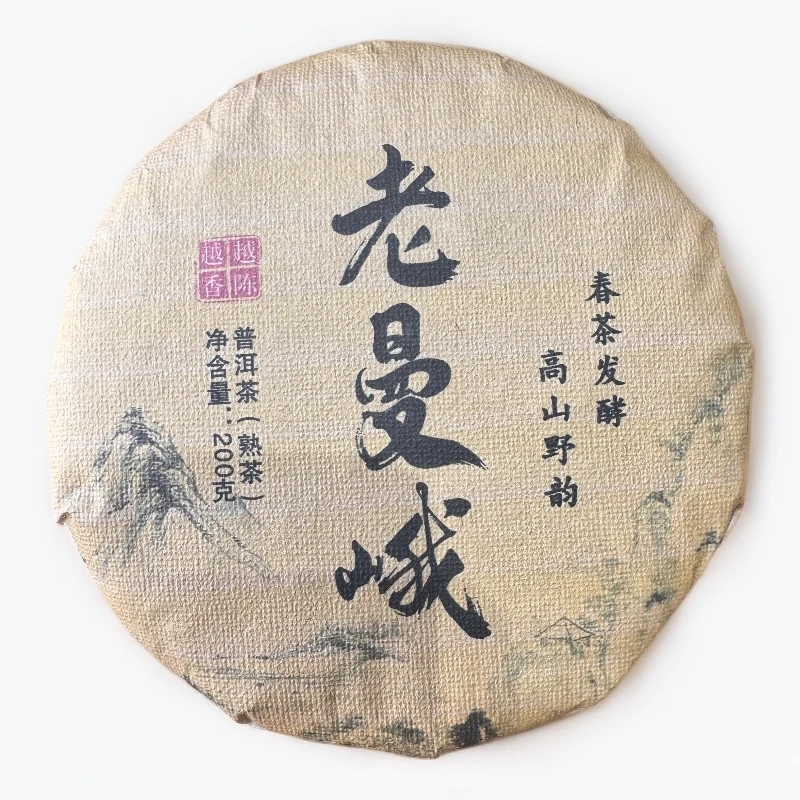 春茶发酵
高山野韵
老曼峨
越陈
越香
普洱茶(熟茶)
净含量:200克